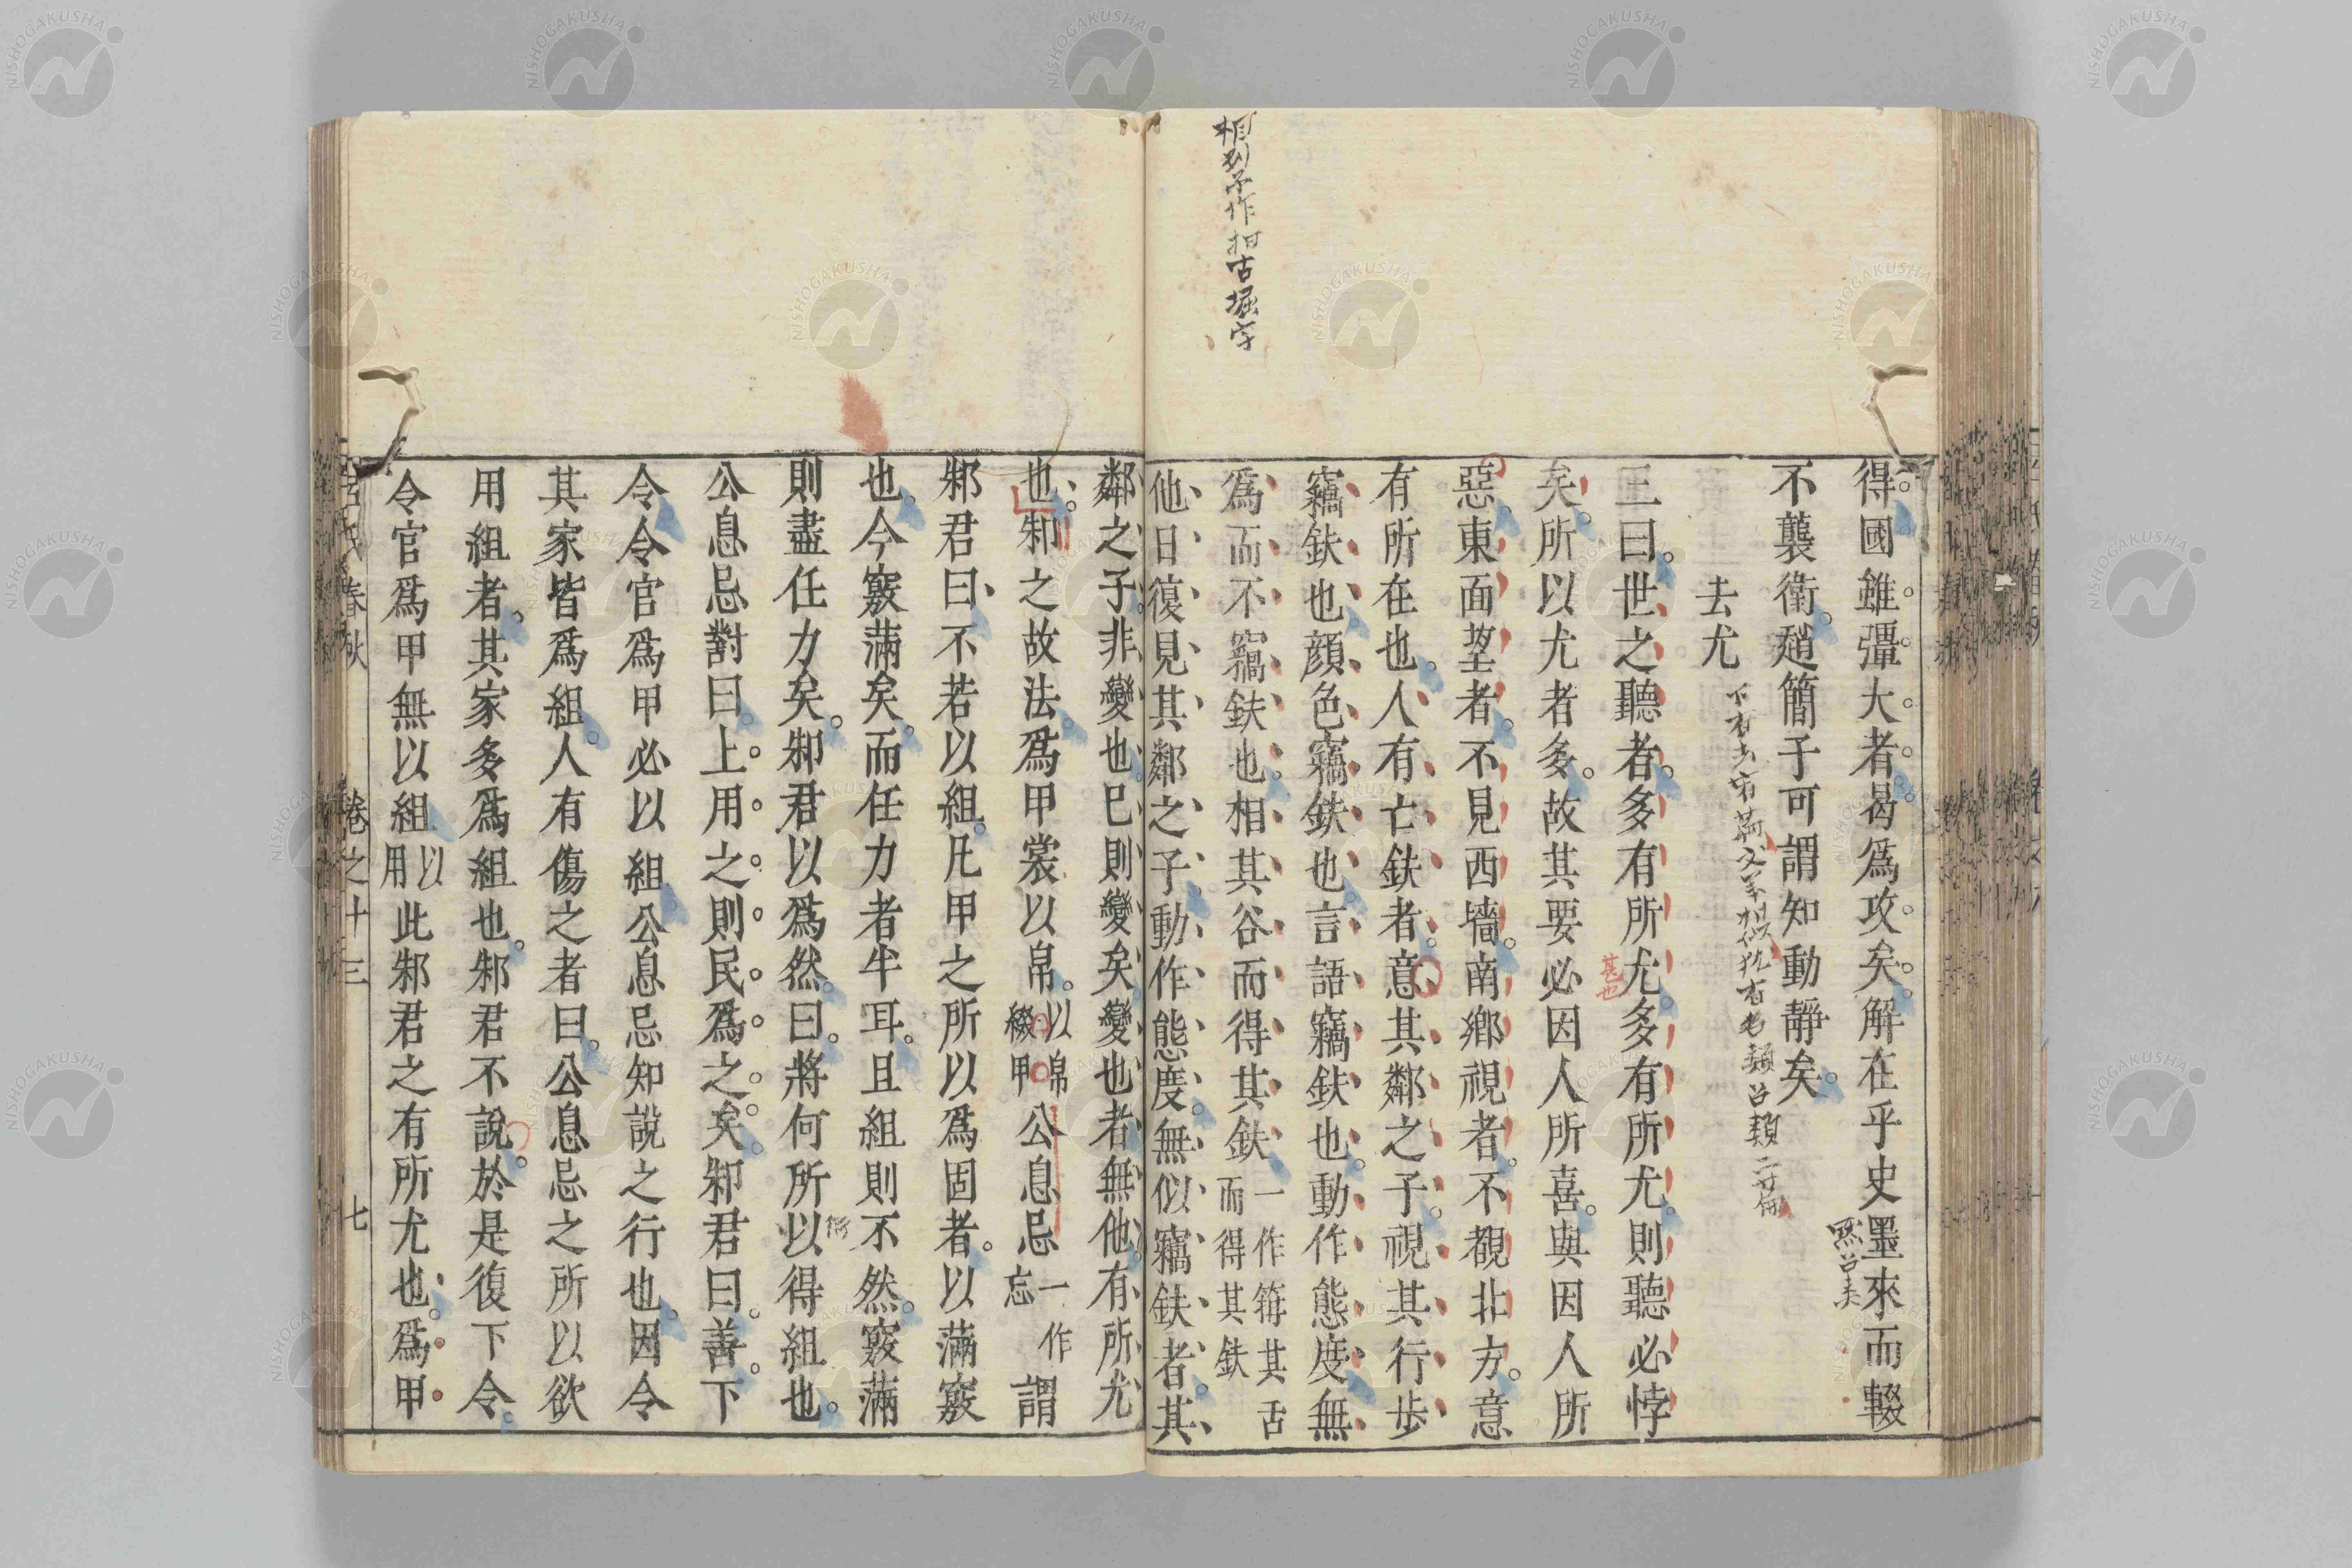 得國雖彊大者曷爲攻矣解在乎史墨來而輟
不襲衛趙簡子可謂知動靜矣
去尤
三曰世之聽者多有所尤多有所尤則聽必悖
甚也
矣所以尤者多故其要必因人所喜與因人所
惡東面望者不見西墻南鄉視者不覩北方意
有所在也人有亡鈇者意其鄰之子視其行步
竊鈇也顏色竊鈇也言語竊鈇也動作態度無
爲而不竊鈇也相其谷而得其鈇一作䈞其舌而得其鈇
他日復見其鄰之子動作態度無似竊鈇者其
相列子作抇古掘字
鄰之子非變也已則變矣變也者無他有所尤
也邾之故法爲甲裳以帛以帛綴甲公息忌一作忘謂
邾君曰不若以組凡甲之所以爲固者以滿竅
也今竅滿矣而任力者半耳且組則不然竅滿
則盡任力矣邾君以爲然曰將何所以得組也
公息忌對曰上用之則民爲之矣邾君曰善下
令令官爲甲必以組公息忌知說之行也因令
其家皆爲組人有傷之者曰公息忌之所以欲
用組者其家多爲組也邾君不說於是復下令
令官爲甲無以組以用此邾君之有所尤也爲甲
呂氏春秋 卷之十三 七
NISHOGAKUSHA